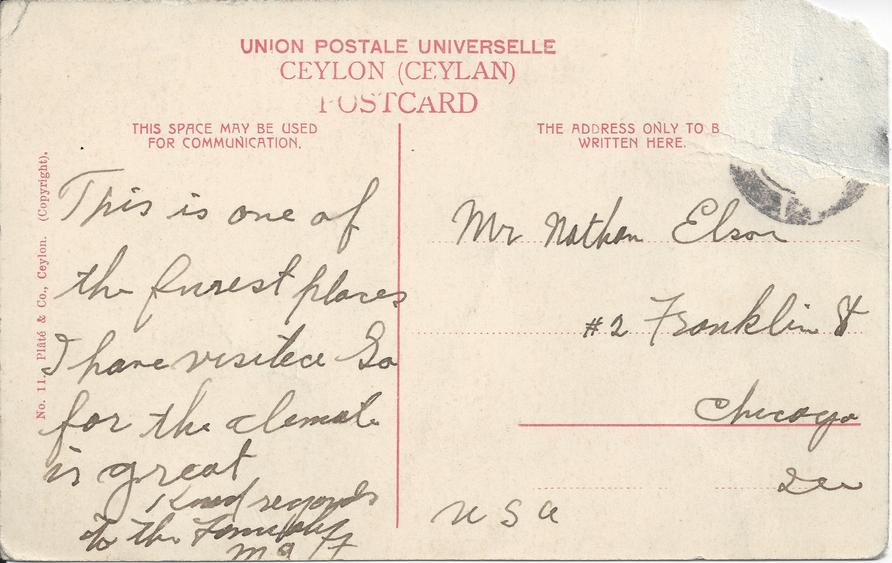 UNION POSTALE UNIVERSELLE
CEYLON (CEYLAN)
POSTCARD
THIS SPACE MAY BE USED
FOR COMMUNICATION.
THE ADDRESS ONLY TO B
WRITTEN HERE.
No. 11. Plâté & Co., Ceylon. (Copyright).
This is one of
the finest places
I have visited So
far the climate
is great
Kind regards
to the Family
Mr Nathan Elson
#2 Franklin St
Chicago
Ill
U S A